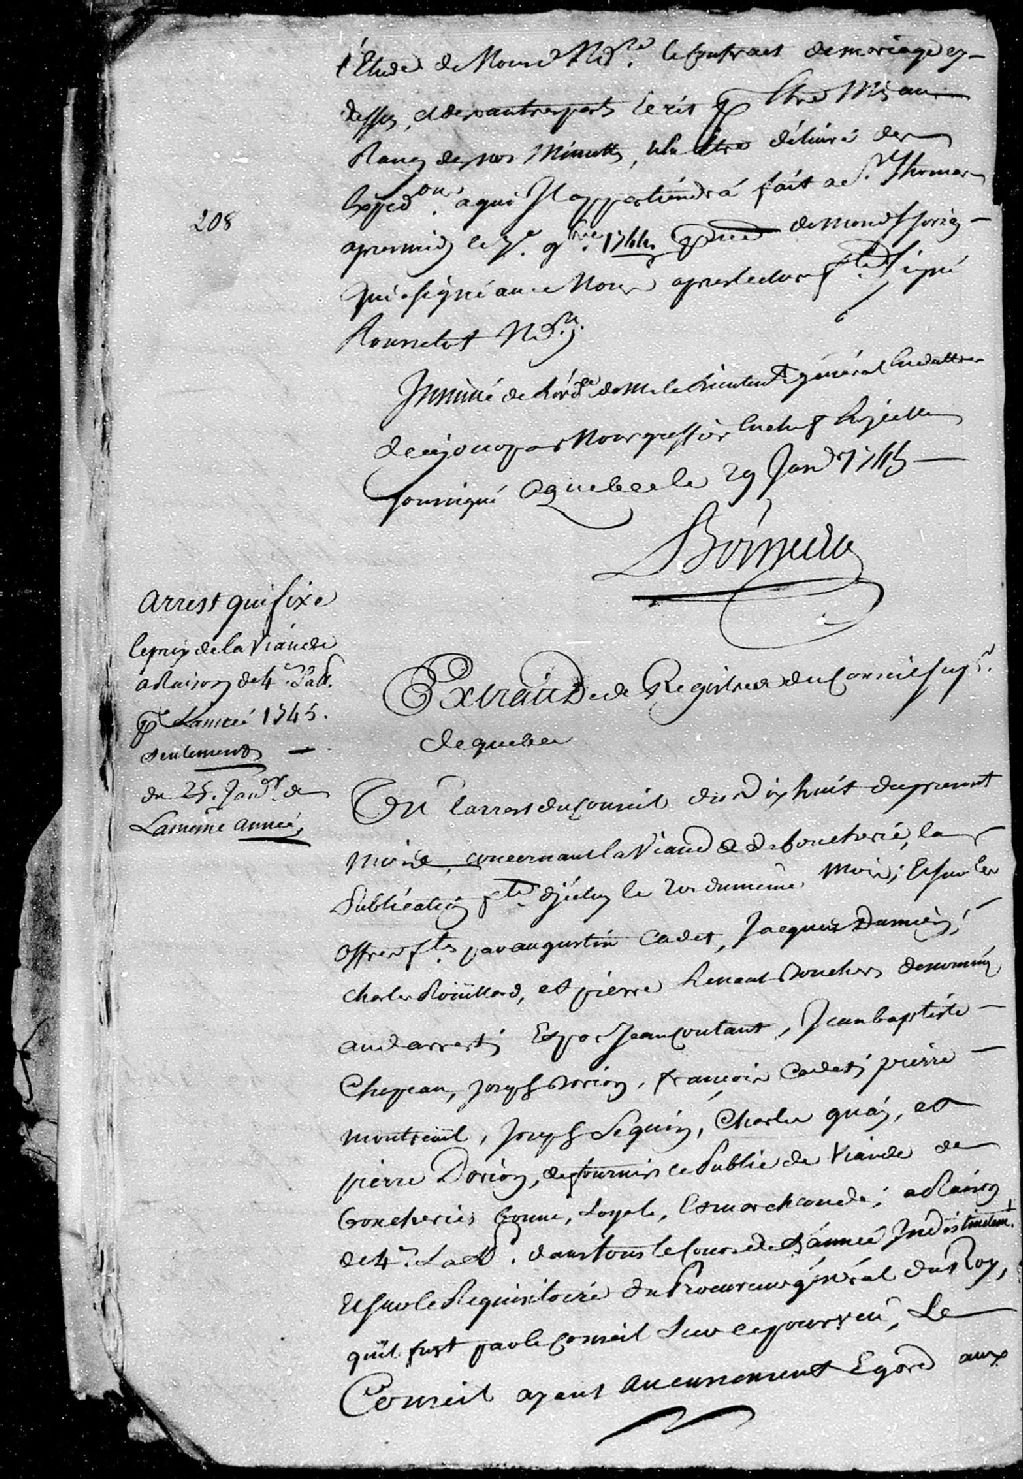 l'Etude de Nous d. Nre. le Contrat de mariage cy-
dessus, et des autres parts Ecrit pr Etre Mis au
Rang de nos Minuttes, Et Etre délivré des
Expedons. à qui Il appartiendra fait a St. Thomas
apres midy le 7e. 9bre. 1744 de mond. Sr
qui a signé avec Nous apres lecture fte. signé
Rousselot Nre.
Insinué de l'ordre de M. le Lieutent général
de ce jour par Nous greffier
soussigné a quebec le 29 Janvr 1745
Boisseau
208
Arrest qui fixe
le prix de la Viande
a Raison de 4s. La lt.
pr L'année 1745.
seulement
du 25. Janvr. de
La même année,
Extrait des Registres du Conseil supr.
de quebec
Vu l'arrest du Conseil du dix huit du present
mois, concernant la Viande de boucherie, la
Publication fte. d'jceluy le du même mois; Et sur les
offres ftes. par augustin Cadet, Jacques Damien,
Charles Roüillard, et pierre Renaut Bouchers denommés
aud. arrest; Et par Jean Coutant, Jean baptiste
Chapeau, Joseph Dorion, françois Cadet, pierre
montreüil, Joseph Seguin, Charles et
pierre Dorion, de fournir ce Public de Viande de
boucheries bonne, Loyale, Et marchande; a Raison
de 4s. La lt. dans tous le Cours de L'année Indistinctemt.
Et sur le Requisitoire du Procureur général du Roy,
qu'il fust par le Conseil Sur ce pourveu, Le
Conseil ayant aucunement Egard aux